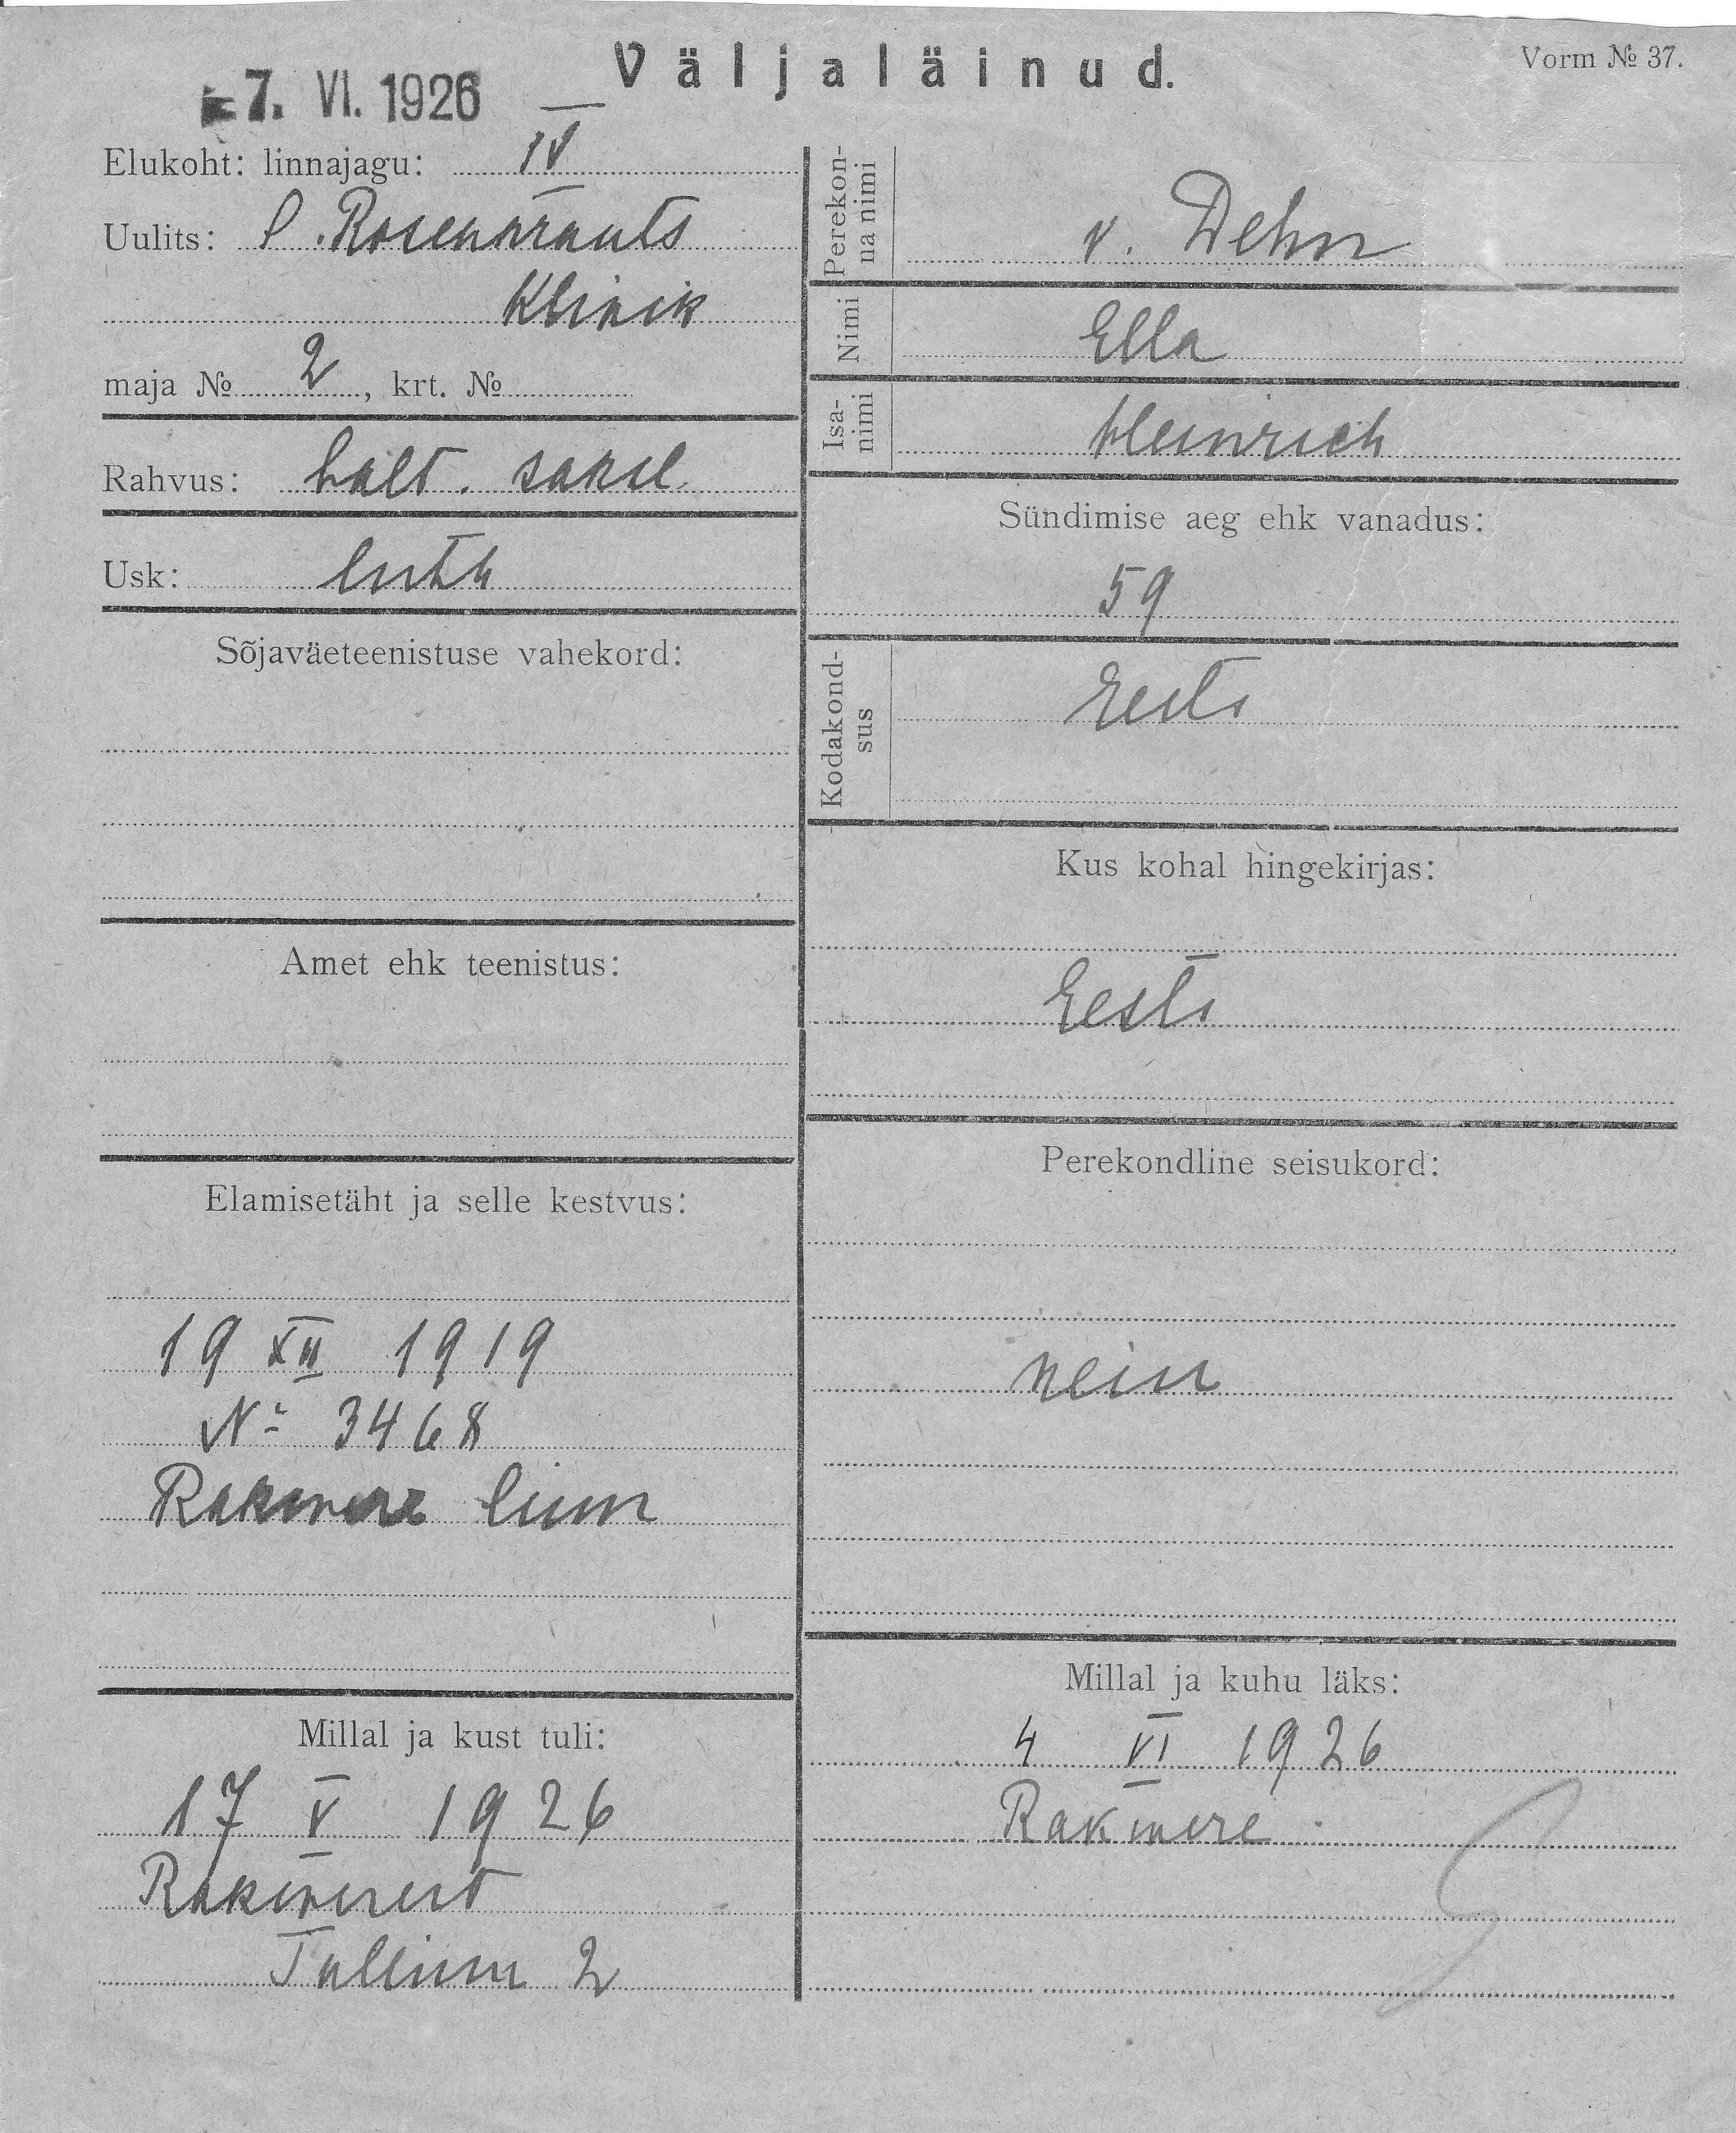 Väljaläinud.
Vorm № 37.
7. VI. 1926
Elukoht: linnajagu: IV
Uulits:
Klinik
maja № 2, krt. №
Rahvus: balt. saksl.
Usk: luth
Sõjaväeteenistuse vahekord:
Amet ehk teenistus:
Elamisetäht ja selle kestvus:
19 XII 1919
№ 3468
Rakwere linn
Millal ja kust tuli:
17 V 1926
Rakwerest
Tallinn 2
Perekon-
na nimi
v. Dehn
Nimi
Ella
Isa-
nimi
Heinrich
Sündimise aeg ehk vanadus:
59
Kodakond-
sus
Eesti
Kus kohal hingekirjas:
Eesti
Perekondline seisukord:
Millal ja kuhu läks:
4 VI 1926
Rakwere